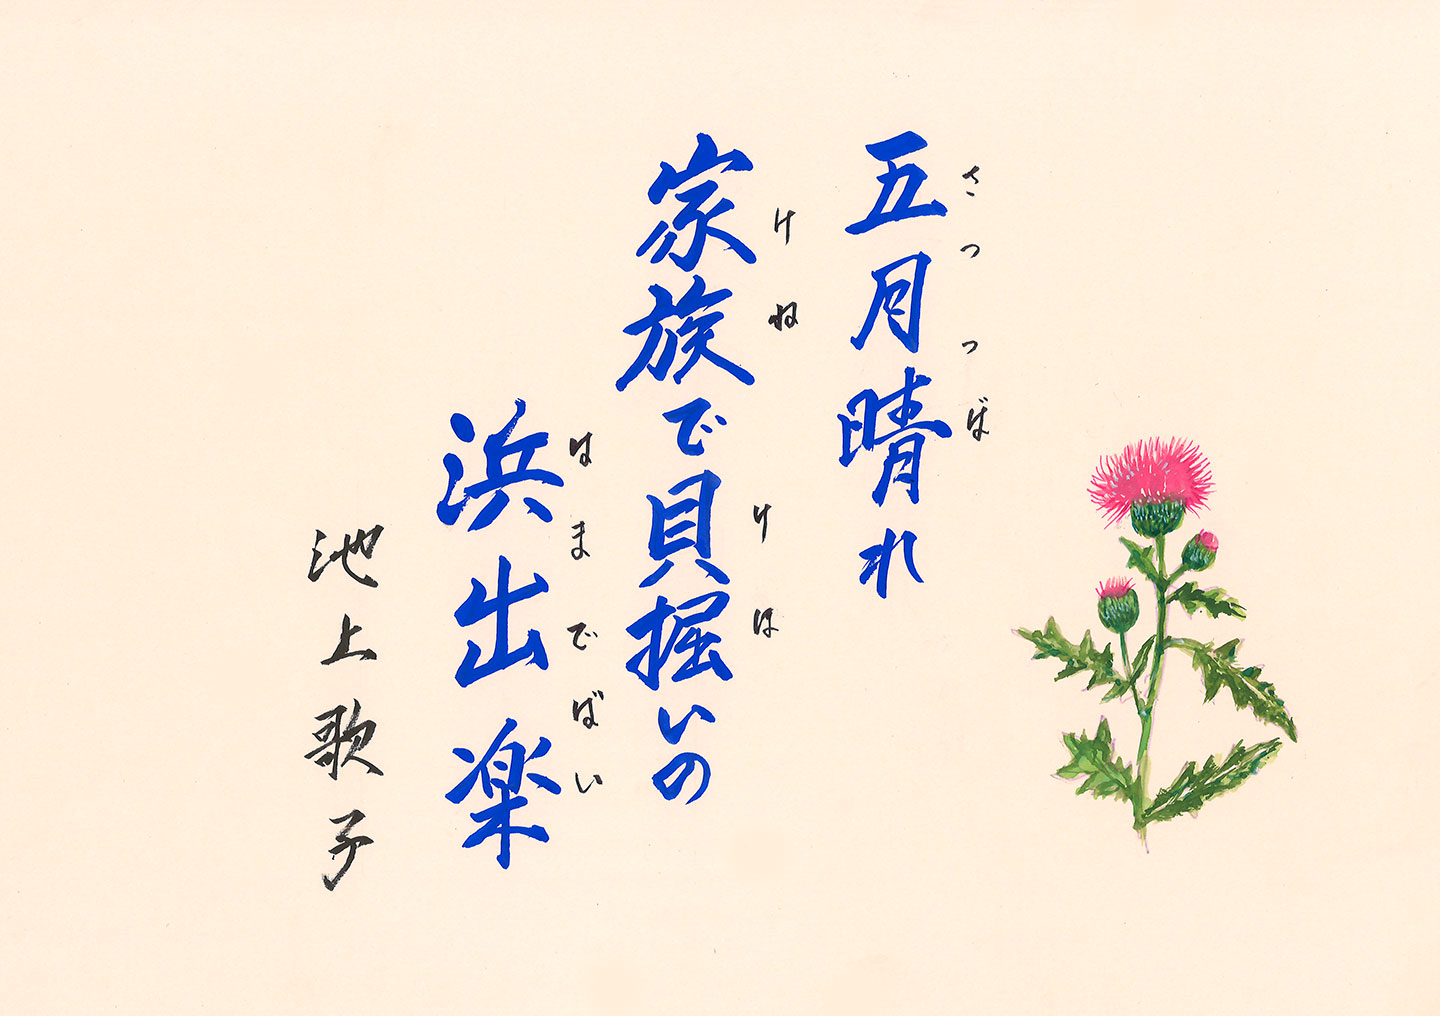 五月晴れ
さつつぼ
家族で貝掘いの
けね
けほ
浜出楽
はまでばい
池上歌子